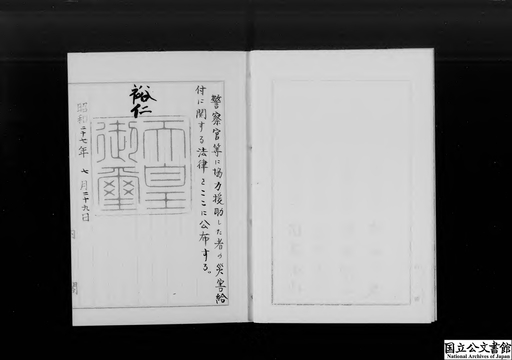 警察官等に協力援助した者の災害給
付に関する法律をここに公布する。
裕仁
天皇
御璽
昭和二十七年七月二十九日
国立公文書館
National Archives of Japan